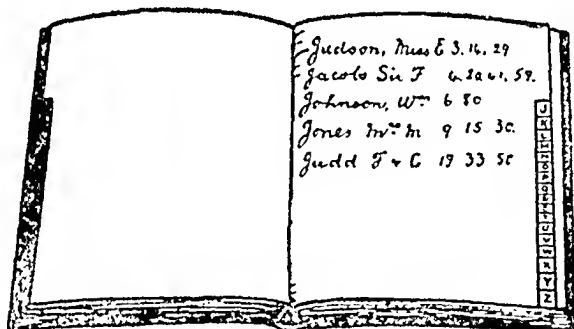 Judson, Miss E 3. 16. 29
Jacobs Sir F 59.
Johnson, Wm 6 80
Jones Mrs M 9 15 30.
Judd F & C 19 33 50
J
K
L
Y
Z